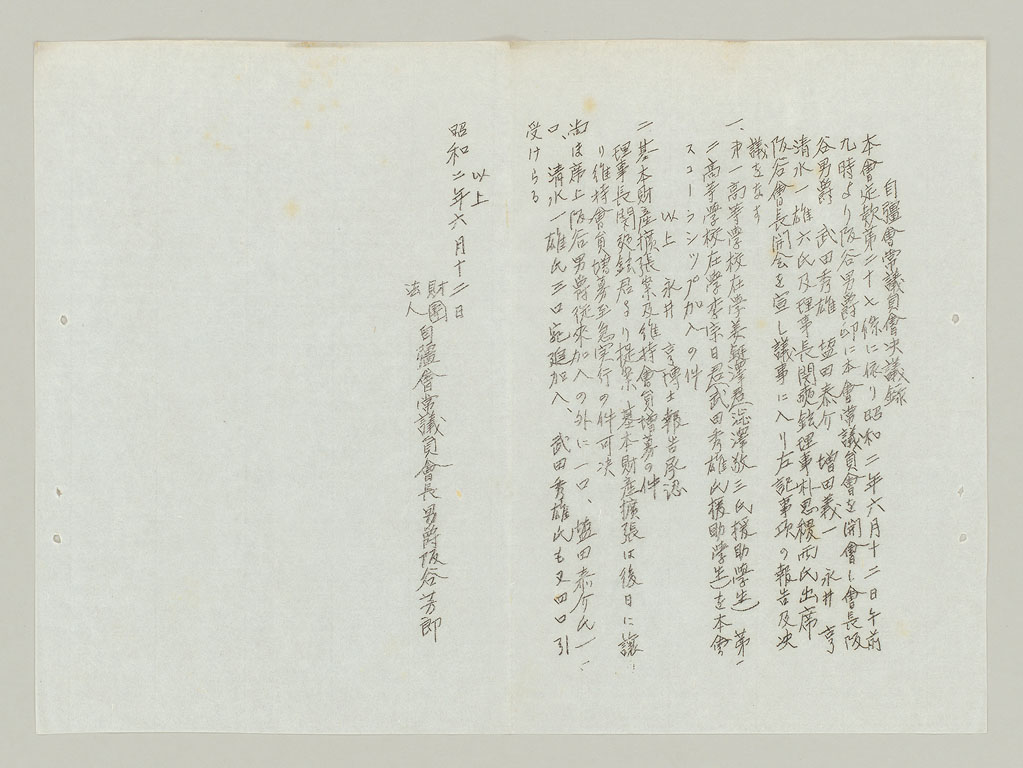 自疆會常議員會决議録
本會定款第二十七條に依り昭和二年六月十二日午前
九時より阪谷男爵邸に本會常議員會を開會し會長阪
谷男爵 武田秀雄 塩田泰介 增田義一 永井 亨
清水一雄六氏及理事長閔 鉉理事朴思稷兩氏出席
阪谷會長開会を宣し議事に入り左記事項の報告及决
議をなす
一、第一高等學校在學姜 澤君澁澤敬三氏援助學生 第一
二高等學校在學李宗日君武田秀雄氏援助學生を本會
スコーラシップ加入の件
以上 永井 亨博士報告承認
二 基本財産擴張案及維持會員增募の件
理事長閔 鉉君より提案 基本財產擴張は後日に讓
り維持會員增募至急実行の件可决
尚ほ席上阪谷男爵從來加入の外に一口、塩田泰介氏一
口、清水一雄氏三口宛追加入、武田秀雄氏も又四口引
受けらる
以上
昭和二年六月十二日
財團
法人 自疆會常議員會長男爵阪谷芳郎